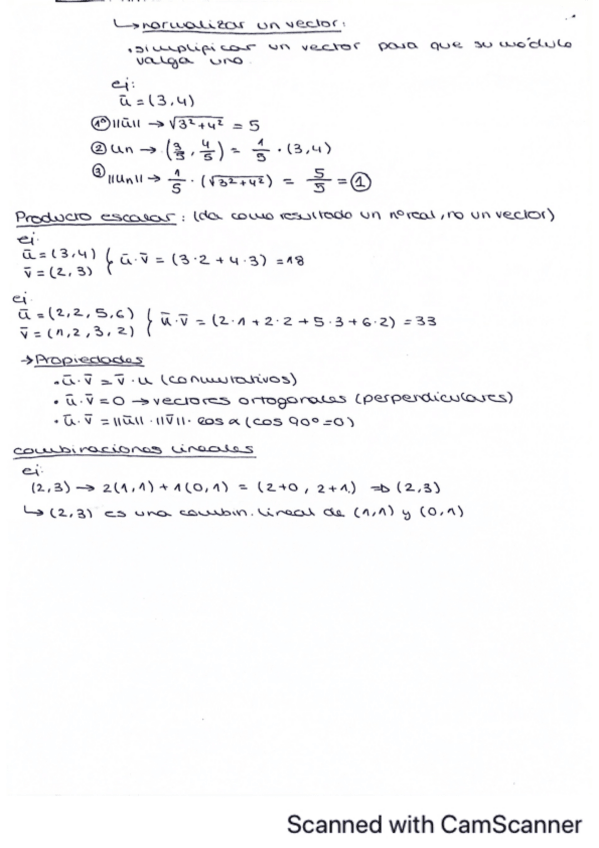 ↳normalizar un vector:
•simplificar un vector para que su módulo
valga uno.
ej:
ū = (3,4)
①º ||ū|| → √3²+4² = 5
② un → (3/5, 4/5) = 1/5 · (3,4)
③ ||un|| → 1/5 · (√3²+4²) = 5/5 = ①
Producto escalar: (da como resultado un nº real, no un vector)
ej:
ū = (3,4)
v̄ = (2,3) } ū·v̄ = (3·2 + 4·3) = 18
ej:
ū = (2,2,5,6)
v̄ = (1,2,3,2) } ū·v̄ = (2·1 + 2·2 + 5·3 + 6·2) = 33
→Propiedades
•ū·v̄ = v̄·u (conmutativos)
•ū·v̄ = 0 → vectores ortogonales (perpendiculares)
•ū·v̄ = ||ū||·||v̄||· cos α (cos 90º = 0)
combinaciones lineales
ej:
(2,3) → 2(1,1) + 1(0,1) = (2+0, 2+1) ⇒ (2,3)
↳ (2,3) es una combin. lineal de (1,1) y (0,1)
Scanned with CamScanner